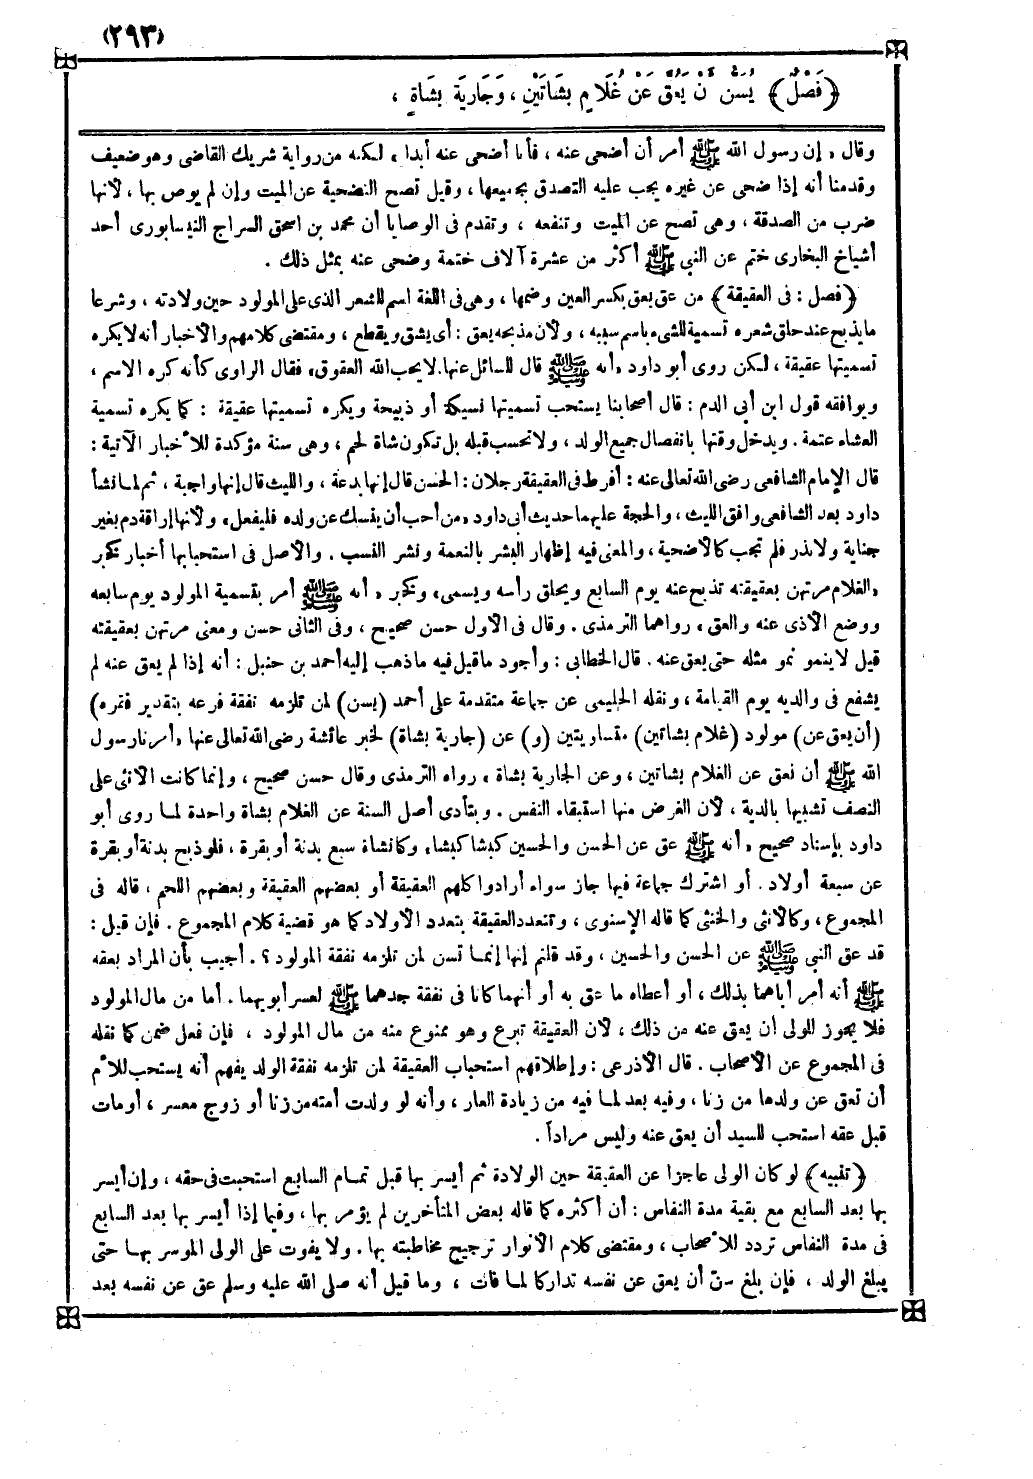 (٢٩٣)
(فَصْلٌ) يُسَنُّ أَنْ يَعُقَّ عَنْ غُلَامٍ بِشَاتَيْنِ ، وَجَارِيَةٍ بِشَاةٍ ،
وقال « إن رسول الله ﷺ أمر أن أضحى عنه ، فأنا أضحى عنه أبدا » لكنه من رواية شريك القاضى وهو ضعيف
وقدمنا أنه إذا ضحى عن غيره يجب عليه التصدق بجميعها ، وقيل تصح التضحية عن الميت وإن لم يوص بها ، لأنها
ضرب من الصدقة ، وهى تصح عن الميت وتنفعه ، وتقدم فى الوصايا أن محمد بن اسحق السراج النيسابورى أحد
أشياخ البخارى ختم عن النبى ﷺ أكثر من عشرة آلاف ختمة وضحى عنه بمثل ذلك .
(فصل : فى العقيقة) من عق يعق بكسر العين وضمها ، وهى فى اللغة اسم للشعر الذى على المولود حين ولادته ، وشرعا
ما يذبح عند حلق شعره تسمية للشىء باسم سببه ، ولأن مذبحه يعق : أى يشق ويقطع ، ومقتضى كلامهم والأخبار أنه لا يكره
تسميتها عقيقة ، لكن روى أبو داود « أنه ﷺ قال للسائل عنها . لا يحب الله العقوق » فقال الراوى كأنه كره الاسم ،
ويوافقه قول ابن أبى الدم : قال أصحابنا يستحب تسميتها نسيكة أو ذبيحة ويكره تسميتها عقيقة : كما يكره تسمية
العشاء عتمة . ويدخل وقتها بانفصال جميع الولد ، ولا تحسب قبله بل تكون شاة لحم ، وهى سنة مؤكدة للأخبار الآتية :
قال الإمام الشافعى رضى الله تعالى عنه : أفرط فى العقيقة رجلان : الحسن قال إنها بدعة ، والليث قال إنها واجبة ، ثم لما نشأ
داود بعد الشافعى وافق الليث ، والحجة عليهما حديث أبى داود « من أحب أن ينسك عن ولده فليفعل » ولأنها إراقة دم بغير
جناية ولا نذر فلم تجب كالأضحية ، والمعنى فيه إظهار البشر بالنعمة ونشر النسب . والأصل فى استحبابها أخبار كخبر
« الغلام مرتهن بعقيقته تذبح عنه يوم السابع ويحلق رأسه ويسمى » وكخبر « أنه ﷺ أمر بتسمية المولود يوم سابعه
ووضع الأذى عنه والعق » رواهما الترمذى . وقال فى الأول حسن صحيح ، وفى الثانى حسن ومعنى مرتهن بعقيقته
قيل لا ينمو نمو مثله حتى يعق عنه . قال الخطابى : وأجود ما قيل فيه ما ذهب إليه أحمد بن حنبل : أنه إذا لم يعق عنه لم
يشفع فى والديه يوم القيامة ، ونقله الحليمى عن جماعة متقدمة على أحمد (يسن) لمن تلزمه نفقة فرعه بتقدير فقره)
(أن يعق عن) مولود (غلام بشاتين) متساويتين (و) عن (جارية بشاة) لخبر عائشة رضى الله تعالى عنها « أمرنا رسول
الله ﷺ أن نعق عن الغلام بشاتين ، وعن الجارية بشاة » رواه الترمذى وقال حسن صحيح ، وإنما كانت الأنثى على
النصف تشبيها بالدية ، لأن الغرض منها استبقاء النفس . ويتأدى أصل السنة عن الغلام بشاة واحدة لما روى أبو
داود بإسناد صحيح « أنه ﷺ عق عن الحسن والحسين كبشا كبشا » وكالشاة سبع بدنة أو بقرة ، فلو ذبح بدنة أو بقرة
عن سبعة أولاد . أو اشترك جماعة فيها جاز سواء أرادوا كلهم العقيقة أو بعضهم العقيقة وبعضهم اللحم ، قاله فى
المجموع ، وكالأنثى والخنثى كما قاله الإسنوى ، وتتعدد العقيقة بتعدد الأولاد كما هو قضية كلام المجموع . فإن قيل :
قد عق النبى ﷺ عن الحسن والحسين ، وقد قلتم إنها إنما تسن لمن تلزمه نفقة المولود ؟ . أجيب بأن المراد بعقه
ﷺ أنه أمر أباهما بذلك ، أو أعطاه ما عق به أو أنهما كانا فى نفقة جدهما ﷺ لعسر أبويهما . أما من مال المولود
فلا يجوز للولى أن يعق عنه من ذلك ، لأن العقيقة تبرع وهو ممنوع منه من مال المولود ، فإن فعل ضمن كما نقله
فى المجموع عن الأصحاب . قال الأذرعى : وإطلاقهم استحباب العقيقة لمن تلزمه نفقة الولد يفهم أنه يستحب للأم
أن تعق عن ولدها من زنا ، وفيه بعد لما فيه من زيادة العار ، وأنه لو ولدت أمته من زنا أو زوج معسر ، أو مات
قبل عقه استحب للسيد أن يعق عنه وليس مراداً .
(تنبيه) لو كان الولى عاجزا عن العقيقة حين الولادة ثم أيسر بها قبل تمام السابع استحبت فى حقه ، وإن أيسر
بها بعد السابع مع بقية مدة النفاس : أن أكثره كما قاله بعض المتأخرين لم يؤمر بها ، وفيما إذا أيسر بها بعد السابع
فى مدة النفاس تردد للأصحاب ، ومقتضى كلام الأنوار ترجيح مخاطبته بها . ولا يفوت على الولى الموسر بها حتى
يبلغ الولد ، فإن بلغ سن أن يعق عن نفسه تداركا لما فات ، وما قيل أنه صلى الله عليه وسلم عق عن نفسه بعد